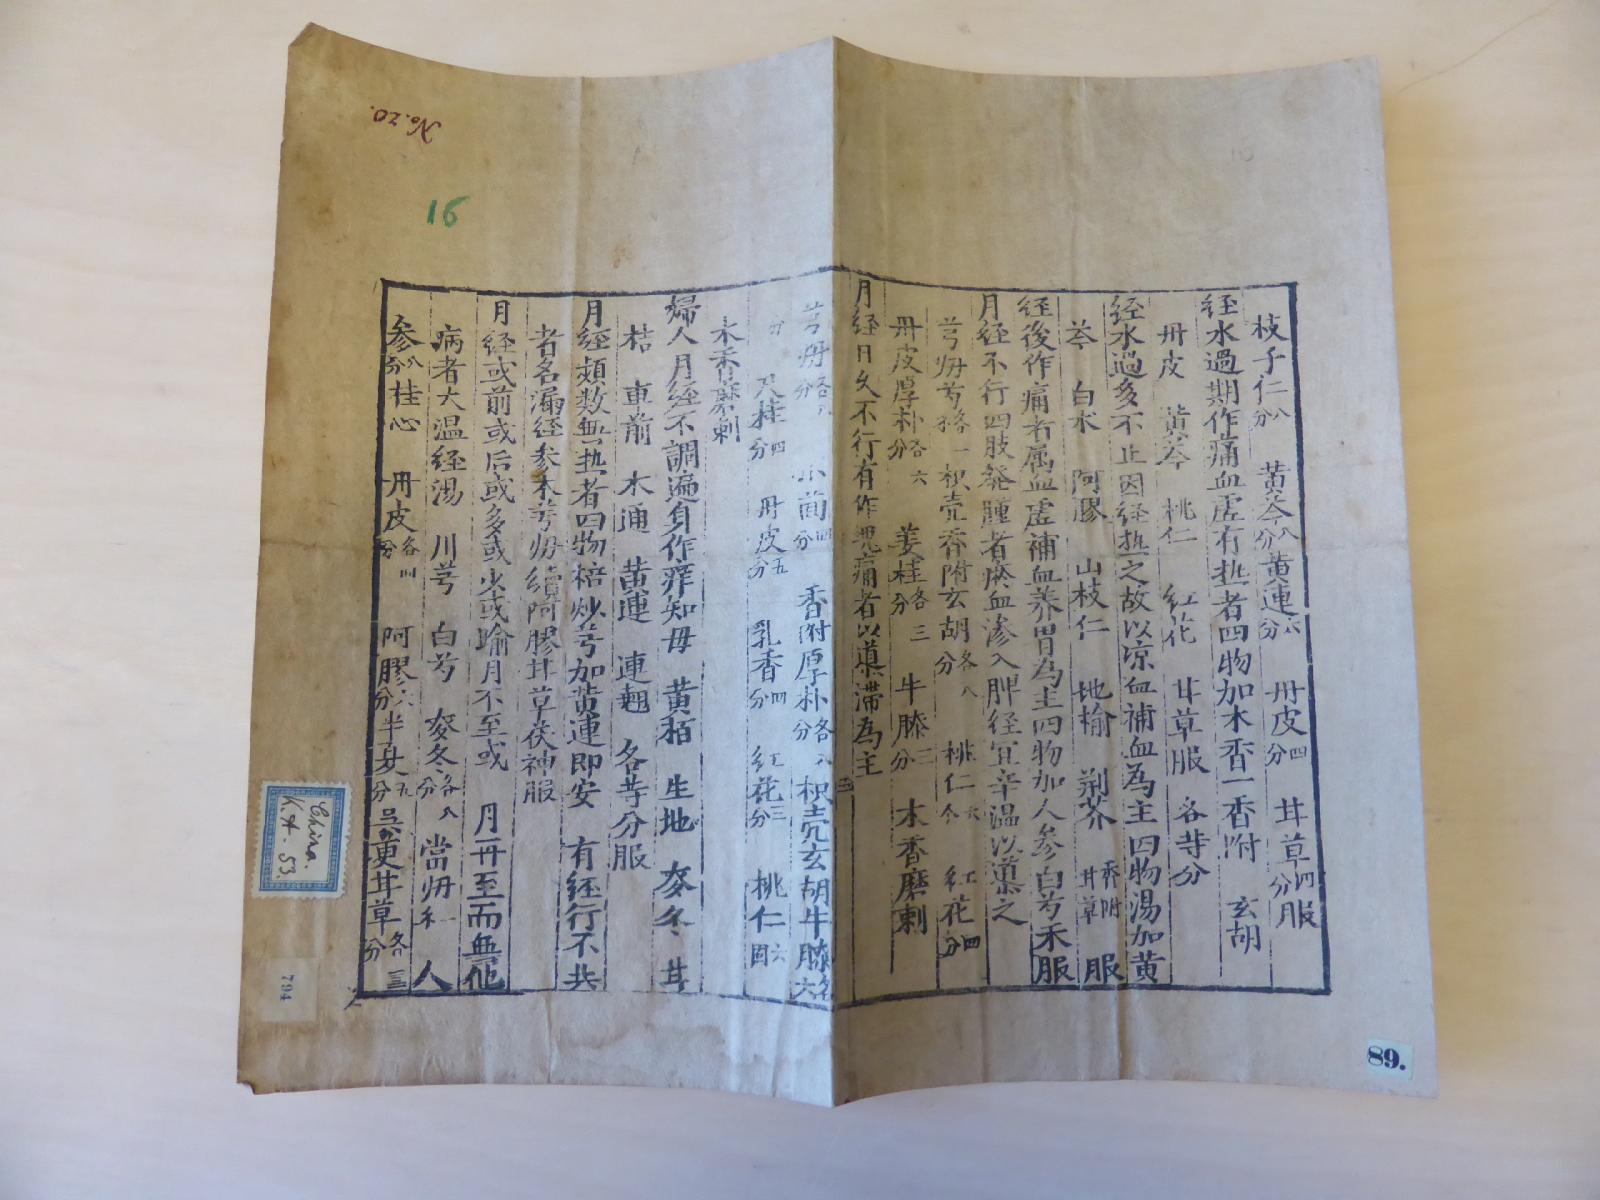 枝子仁八分 黄芩八分 黄連六分 丹皮四分 甘草四分 服
经水過期作痛血虚有热者四物加木香一香附 玄胡
丹皮 黄芩 桃仁 红花 甘草服 各等分
经水過多不止因经热之故以凉血補血為主四物湯加黄
芩 白术 阿膠 山枝仁 地榆 荆芥 香附 甘草 服
经後作痛者属血虚補血养胃為主四物加人参白芍禾服
月经不行四肢発腫者瘀血滲入脾经宜辛温以導之
芎归芍各一 枳壳香附玄胡各八分 桃仁六分 红花四分
丹皮厚朴各六分 姜桂各三分 牛膝二分 木香磨剌
月经日久不行有作塊痛者以導滞為主
芎归 小茴四分 香附厚朴各八分 枳壳玄胡牛膝各六
分 肉桂四分 丹皮五分 乳香四分 红花三分 桃仁六
木香磨剌
婦人月经不調遍身作痒知毋 黄栢 生地 麥冬 甘
桔 車前 木通 黄連 連翹 各等分服
月经頻数無热者四物棓炒芎加黄連即安 有经行不共
者名漏经参木芎归續阿膠甘草茯神服
月经或前或后或多或少或喻月不至或 月再至而無他
病者大温经湯 川芎 白芍 麥冬各八分 當归 人
参八分 桂心 丹皮各四分 阿膠六分 半夏五分 吳萸甘草各三分
No. 20.
16
China.
K.A. 53.
794
89.